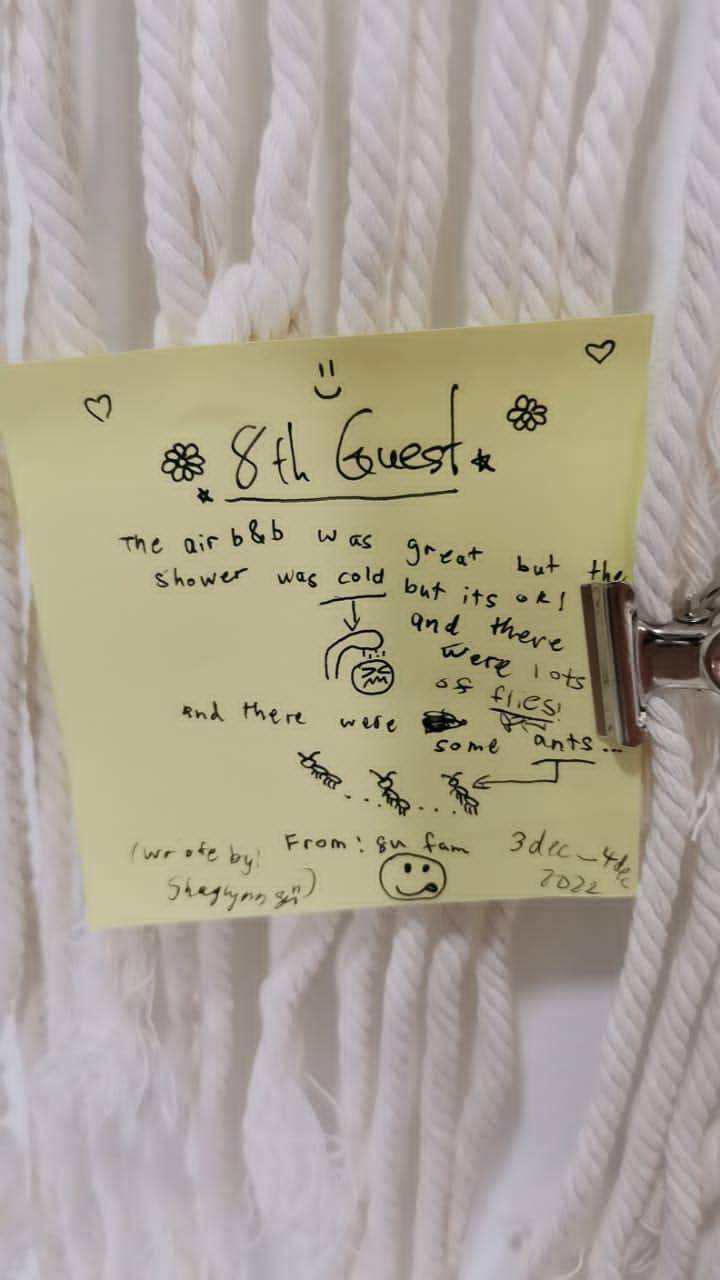 8th Guest
The air b&b was great but the
shower was cold but its ok!
and there
were lots
of flies!
and there were
some ants...
From: gu fam
(wrote by:
3dec - 4dec
2022